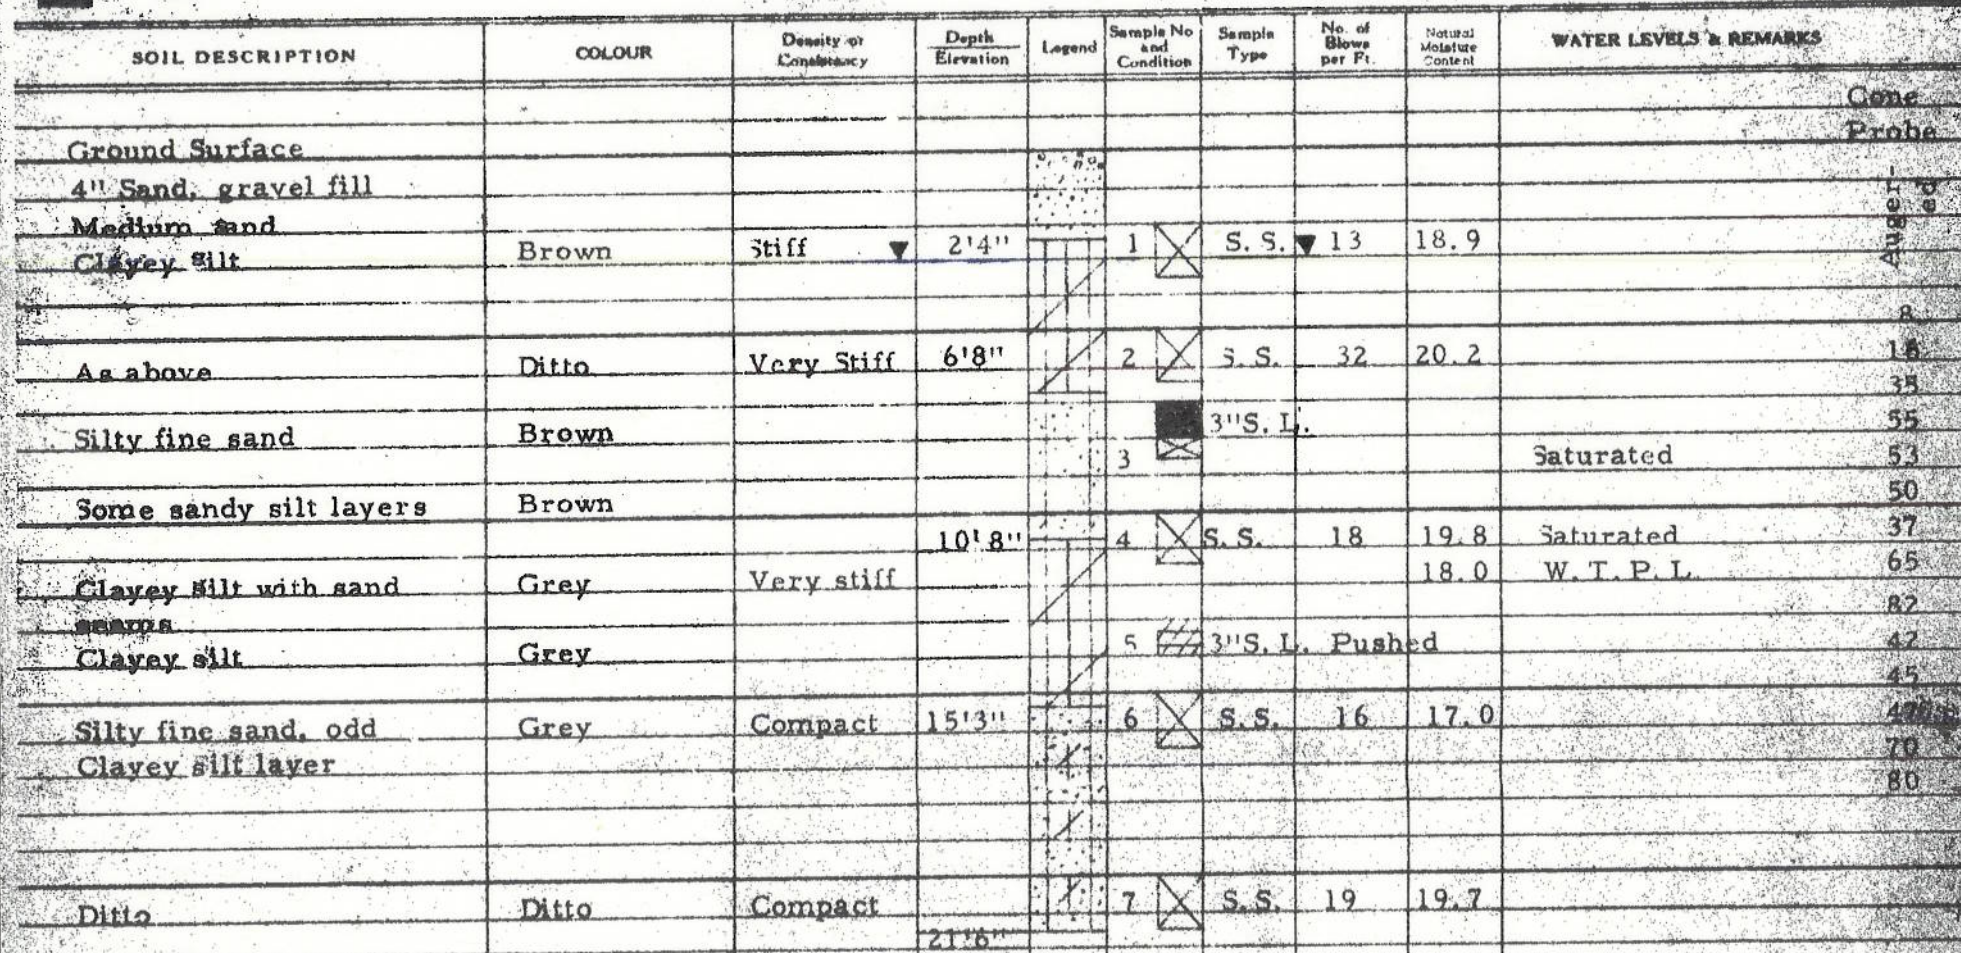 SOIL DESCRIPTION COLOUR Density or Consistency Depth Elevation Legend Sample No and Condition Sample Type No. of Blows per Ft. Natural Moisture Content WATER LEVELS & REMARKS
Cone
Probe
Ground Surface
4" Sand, gravel fill
Auger-ed
Medium sand
Clayey Silt Brown Stiff 2'4" 1 S. S. 13 18.9
8
As above Ditto Very Stiff 6'8" 2 S. S. 32 20.2 16
35
Silty fine sand Brown 3"S. L. 55
3 Saturated 53
50
Some sandy silt layers Brown
10'8" 4 S. S. 18 19.8 Saturated 37
18.0 W. T. P. L. 65
Clayey Silt with sand Grey Very stiff
82
seams
Clayey silt Grey 5 3"S. L. Pushed 42
45
Silty fine sand, odd Grey Compact 15'3" 6 S. S. 16 17.0
Clayey silt layer 70
80
Ditto Ditto Compact 7 S. S. 19 19.7
21'6"